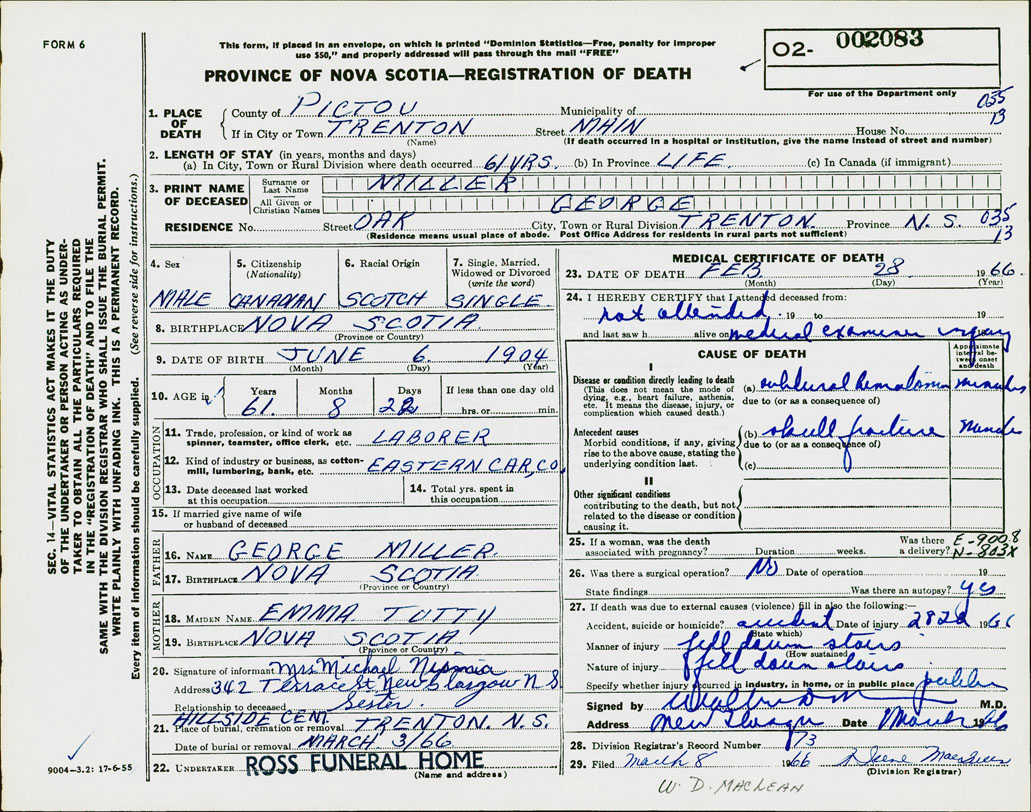 FORM 6
This form, if placed in an envelope, on which is printed "Dominion Statistics—Free, penalty for improper
use $50," and properly addressed will pass through the mail "FREE"
PROVINCE OF NOVA SCOTIA—REGISTRATION OF DEATH
02- 002083
For use of the Department only
035
13
1. PLACE OF DEATH
County of PICTOU Municipality of
If in City or Town TRENTON Street MAIN House No.
(Name) (If death occurred in a hospital or institution, give the name instead of street and number)
2. LENGTH OF STAY (in years, months and days)
(a) In City, Town or Rural Division where death occurred 61 YRS. (b) In Province LIFE. (c) In Canada (if immigrant)
3. PRINT NAME OF DECEASED
Surname or Last Name MILLER
All Given or Christian Names GEORGE
RESIDENCE No. Street OAK City, Town or Rural Division TRENTON. Province N. S. 035
(Residence means usual place of abode. Post Office Address for residents in rural parts not sufficient) 13
4. Sex
MALE
5. Citizenship
(Nationality)
CANADIAN
6. Racial Origin
SCOTCH
7. Single, Married,
Widowed or Divorced
(write the word)
SINGLE
8. BIRTHPLACE NOVA SCOTIA.
(Province or Country)
9. DATE OF BIRTH JUNE 6. 1904
(Month) (Day) (Year)
10. AGE in
Years Months Days If less than one day old
61. 8 22 hrs. or min.
OCCUPATION
11. Trade, profession, or kind of work as
spinner, teamster, office clerk, etc. LABORER
12. Kind of industry or business, as cotton-
mill, lumbering, bank, etc. EASTERN CAR, CO,
13. Date deceased last worked
at this occupation
14. Total yrs. spent in
this occupation
15. If married give name of wife
or husband of deceased
FATHER
16. NAME GEORGE MILLER.
17. BIRTHPLACE NOVA SCOTIA
(Province or Country)
MOTHER
18. MAIDEN NAME EMMA TUTTY
19. BIRTHPLACE NOVA SCOTIA
(Province or Country)
20. Signature of informant Mrs Michael
Address 342 Terrace St New Glasgow N S
Relationship to deceased Sister.
HILLSIDE CEM.
21. Place of burial, cremation or removal TRENTON. N.S.
Date of burial or removal MARCH 3/66
22. UNDERTAKER ROSS FUNERAL HOME
(Name and address)
MEDICAL CERTIFICATE OF DEATH
23. DATE OF DEATH FEB 28 1966
(Month) (Day) (Year)
24. I HEREBY CERTIFY that I attended deceased from:
not attended 19 to 19
and last saw h alive on medical examiner
CAUSE OF DEATH
Approximate
interval be-
tween onset
and death
I
Disease or condition directly leading to death
(This does not mean the mode of
dying, e.g., heart failure, asthenia,
etc. It means the disease, injury, or
complication which caused death.)
(a) subdural hematoma minutes
due to (or as a consequence of)
Antecedent causes
Morbid conditions, if any, giving
rise to the above cause, stating the
underlying condition last.
(b) skull fracture
due to (or as a consequence of)
(c)
II
Other significant conditions
contributing to the death, but not
related to the disease or condition
causing it.
25. If a woman, was the death Was there E-900.8
associated with pregnancy? Duration weeks. a delivery? N-803X
26. Was there a surgical operation? No Date of operation 19
State findings Was there an autopsy? yes
27. If death was due to external causes (violence) fill in also the following:—
Accident, suicide or homicide? accident Date of injury 28 19
(State which)
Manner of injury fell down stairs
(How sustained)
Nature of injury fell down stairs
Specify whether injury occurred in industry, in home, or in public place public
Signed by M.D.
Address New Glasgow Date 1 March 1966
28. Division Registrar's Record Number 73
29. Filed March 8 1966
(Division Registrar)
W. D. MACLEAN
SEC. 14—VITAL STATISTICS ACT MAKES IT THE DUTY
OF THE UNDERTAKER OR PERSON ACTING AS UNDER-
TAKER TO OBTAIN ALL THE PARTICULARS REQUIRED
IN THE "REGISTRATION OF DEATH" AND TO FILE THE
SAME WITH THE DIVISION REGISTRAR WHO SHALL ISSUE THE BURIAL PERMIT.
WRITE PLAINLY WITH UNFADING INK. THIS IS A PERMANENT RECORD.
Every item of information should be carefully supplied. (See reverse side for instructions.)
9004—3.2: 17-6-55